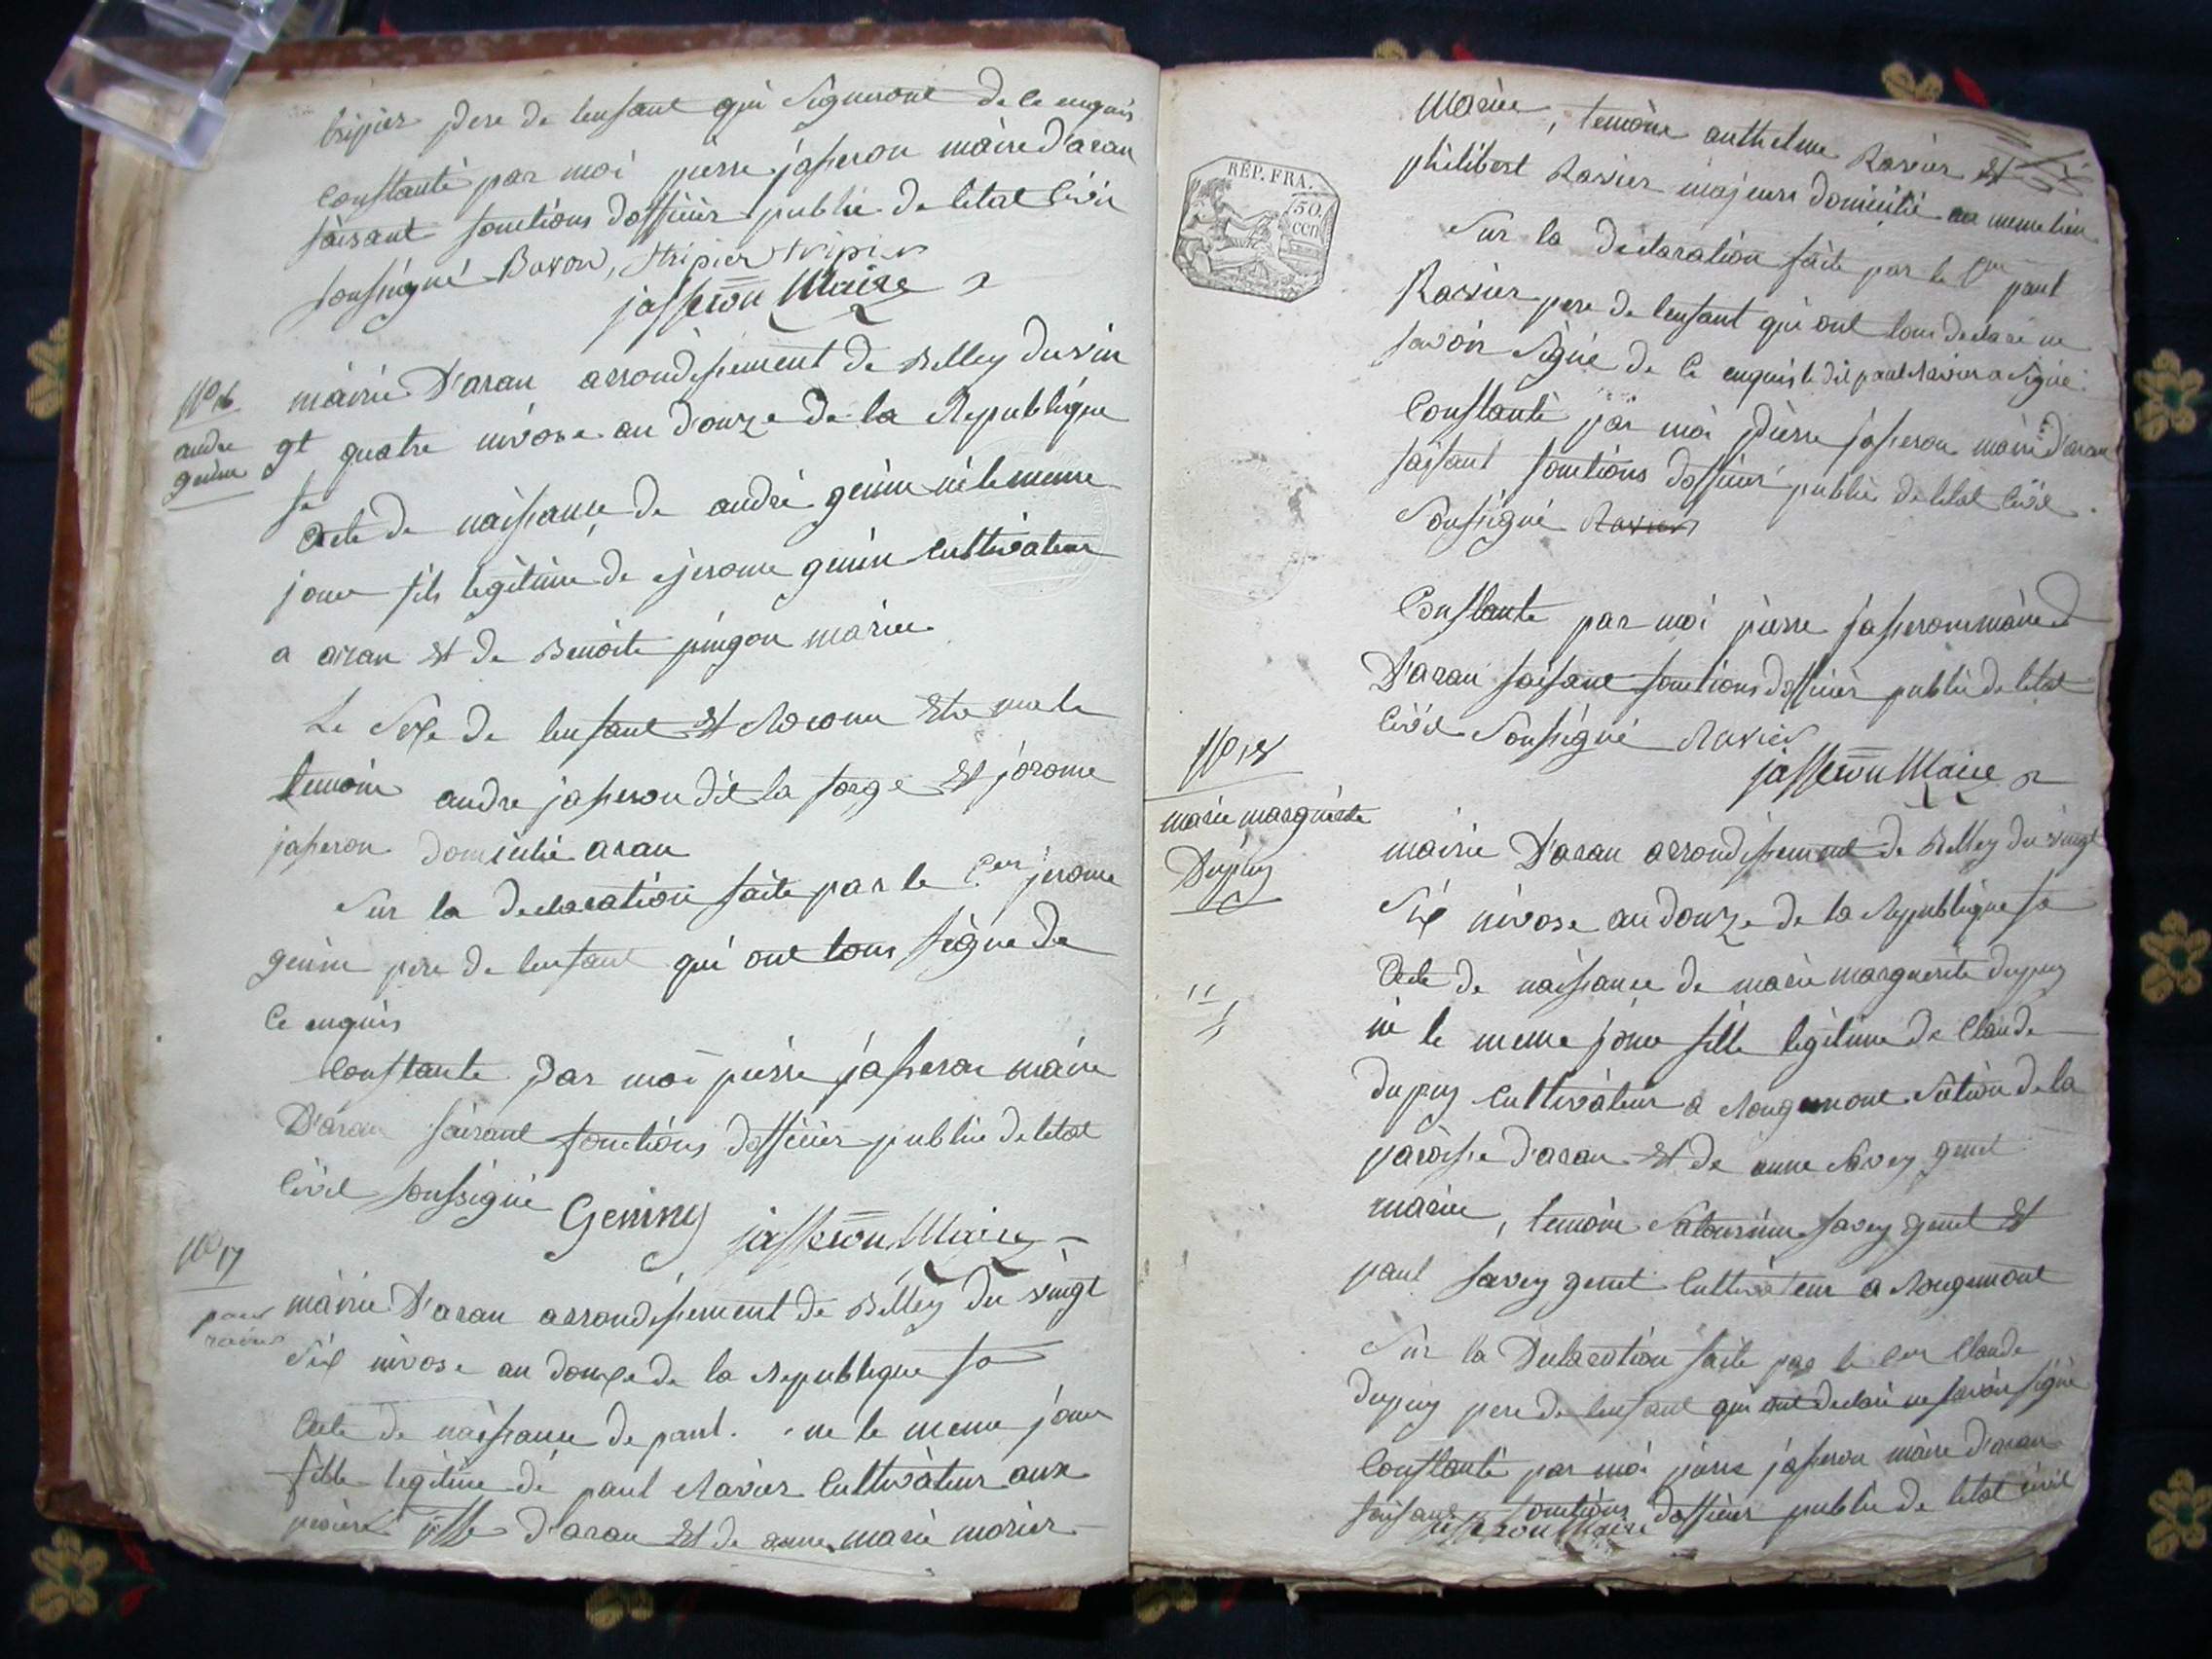 tripier pere de lenfant qui signeront de ce enquis
Constanté par moi pierre jasseron maire d'aran
faisant fonctions dofficier public de letat Civil
soussigné Bavon, tripier tripier
jasseron Maire
N° 16
andre
genin
mairie D'aran arrondissement de Belley du vin
gt quatre nivose an douze de la Republique
fe
Acte de naissance de andré genin né le meme
jour fils legitime de jerome genin cultivateur
a aran et de Benoite pingon mariee
Le Sexe de lenfant est Reconnu etre male
temoin andre jasseron dit la forge et jerome
jasseron domicilié aran
Sur la declaration faite par le Cen jerome
genin pere de lenfant qui ont tous signé de
Ce enquis
Constanté par moi pierre jasseron maire
D'aran faisant fonctions dofficier public de letat
Civil soussigné Geniny jasseron Maire
N° 17
paul
ravier
mairie D'aran arrondissement de Belley du vingt
Six nivose an douze de la Republique fe
Acte de naissance de paul né le meme jour
fille legitime de paul Ravier Cultivateur aux
d'aran et de anne marie morier
Mariee, temoin anthelme Ravier et
philibert Ravier majeurs domicilié au meme lieu
Sur la declaration faite par le Cen paul
Ravier pere de lenfant qui ont tous declaré ne
savoir signé de Ce enquis le dit paul Ravier a signé
Constanté par moi pierre jasseron maire d'aran
faisant fonctions dofficier public de letat Civil
Soussigné Ravier
Constanté par moi pierre jasseron maire d
D'aran faisant fonctions dofficier public de letat
Civil Soussigné Ravier
jasseron Maire
RÉP. FRA.
50.
CEN
N° 18
marie marguerite
Dupuy
mairie D'aran arrondissement de Belley du vingt
Six nivose an douze de la Republique fe
Acte de naissance de marie marguerite dupuy
né le meme jour fille legitime de Claude
dupuy Cultivateur a Rougemont Section de la
paroisse d'aran et de anne Savey genet
mariee, temoin Savey genet et
paul Savey genet Cultivateur a Rougemont
Sur la Declaration faite par le Cen Claude
dupuy pere de lenfant qui ont declaré ne savoir signé
Constanté par moi pierre jasseron maire d'aran
faisant fonctions dofficier public de letat civil
jasseron Maire